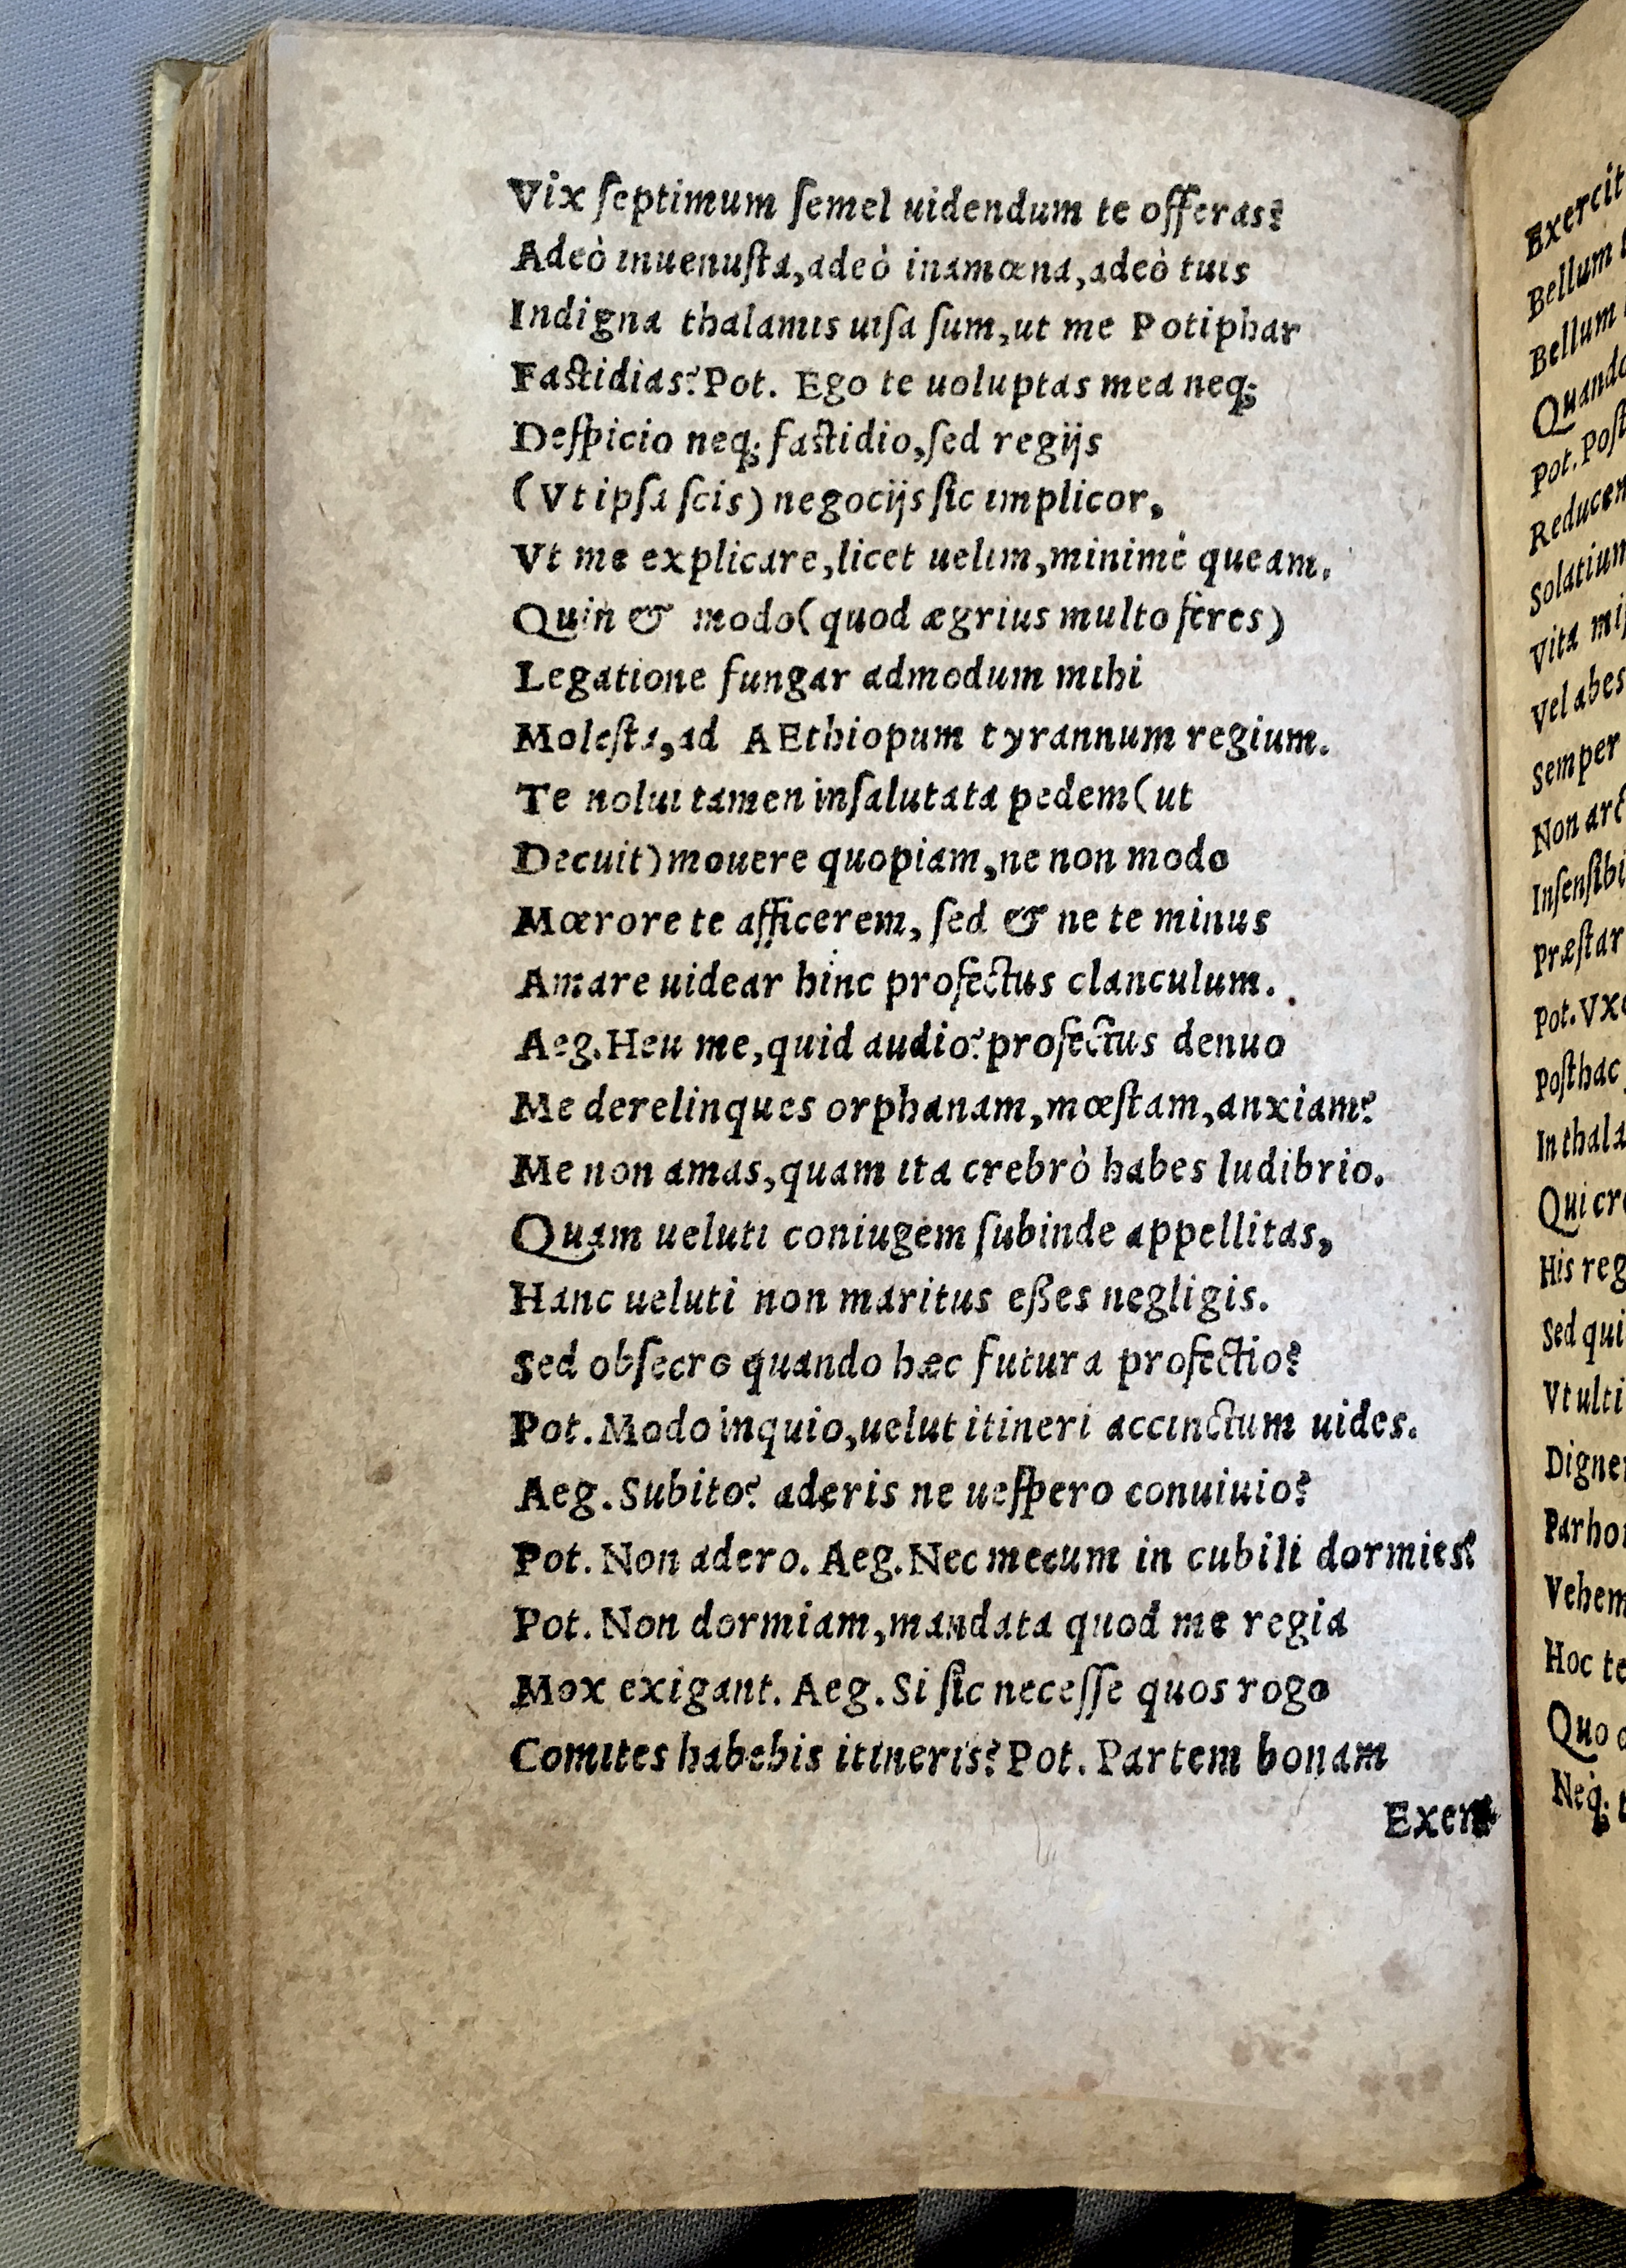 Vix ſeptimum ſemel uidendum te offeras?
Adeò inuenuſta, adeò inamœna, adeò tuis
Indigna thalamis uiſa ſum, ut me Potiphar
Faſtidias? Pot. Ego te uoluptas mea neq;
Deſpicio neq; faſtidio, ſed regijs
(Vt ipſa ſcis) negocijs ſic implicor,
Vt me explicare, licet uelim, minimè queam.
Quin & modo (quod ægrius multo feres)
Legatione fungar admodum mihi
Moleſta, ad AEthiopum tyrannum regium.
Te nolui tamen inſalutata pedem (ut
Decuit) mouere quopiam, ne non modo
Mœrore te afficerem, ſed & ne te minus
Amare uidear hinc profectus clanculum.
Aeg. Heu me, quid audio? profectus denuo
Me derelinques orphanam, mœſtam, anxiam?
Me non amas, quam ita crebrò habes ludibrio.
Quam ueluti coniugem ſubinde appellitas,
Hanc ueluti non maritus eßes negligis.
Sed obſecro quando hæc futura profectio?
Pot. Modo inquio, uelut itineri accinctum uides.
Aeg. Subito? aderis ne ueſpero conuiuio?
Pot. Non adero. Aeg. Nec mecum in cubili dormies?
Pot. Non dormiam, mandata quod me regia
Mox exigant. Aeg. Si ſic neceſſe quos rogo
Comites habebis itineris? Pot. Partem bonam
Exercit
Bellum
Bellum
Quando
Pot. Poſt
Reducem
Solatium
Vita
Vel abes
Semper
Non
Inſenſibi
Præſtar
Pot. Vxo
Poſthac
In thala
Qui cre
His reg
Sed qui
Vt ulti
Digner
Par hon
Vehem
Hoc te
Quo
Neq;